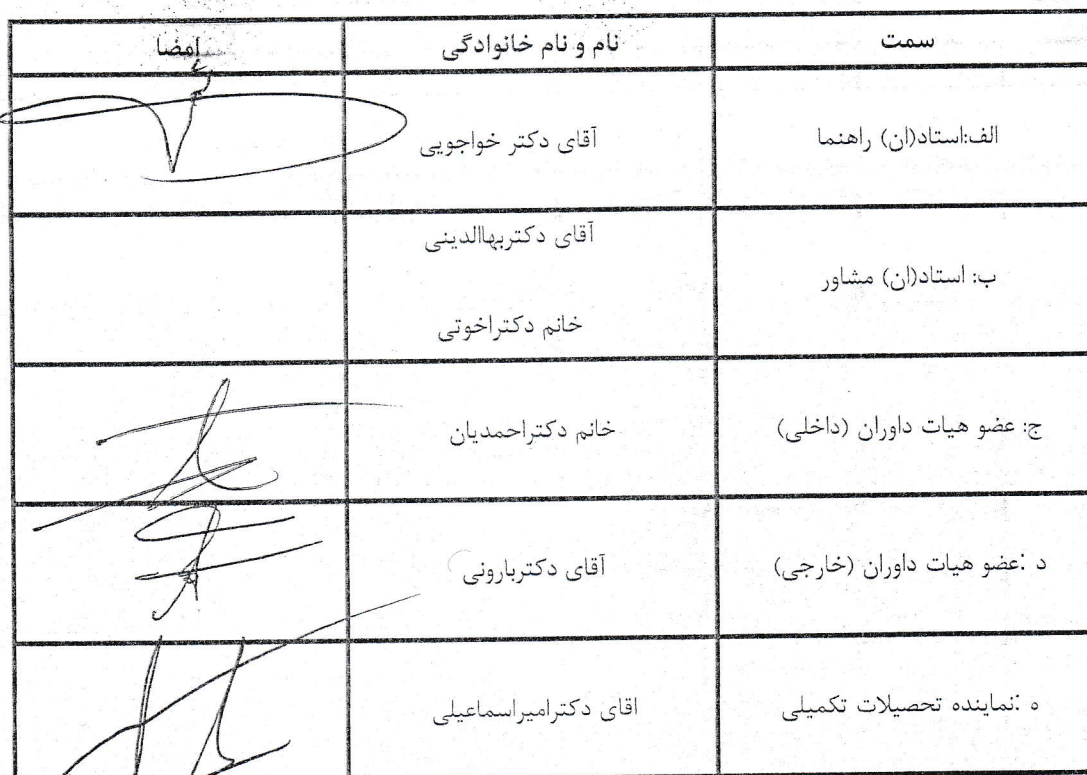 سمت نام و نام خانوادگی امضا
الف:استاد(ان) راهنما آقای دکتر خواجویی
ب: استاد(ان) مشاور آقای دکتربهاالدینی
خانم دکتراخوتی
ج: عضو هیات داوران (داخلی) خانم دکتراحمدیان
د :عضو هیات داوران (خارجی) آقای دکتربارونی
ه :نماینده تحصیلات تکمیلی اقای دکترامیراسماعیلی